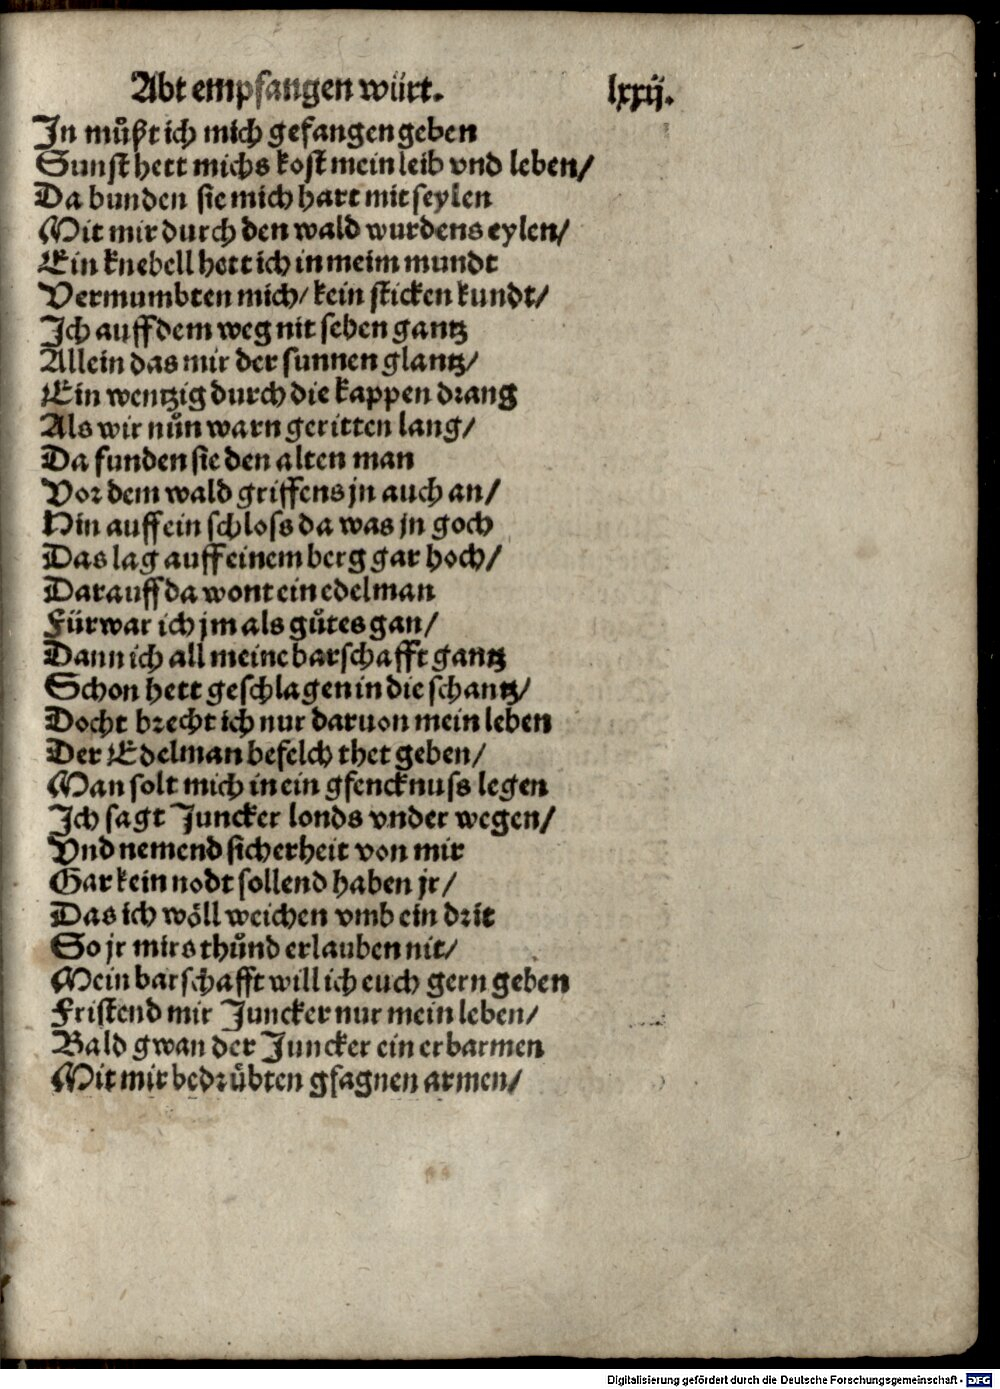 Abt empfangen würt. lxxij.
In můſzt ich mich gefangen geben
Sunſt hett michs koſt mein leib vnd leben/
Da bunden ſie mich hart mit ſeylen
Mit mir durch den wald wurdens eylen/
Ein knebell hett ich in meim mundt
Vermumbten mich/ kein ſticken kundt/
Ich auff dem weg nit ſehen gantz
Allein das mir der ſunnen glantz/
Ein wentzig durch die kappen drang
Als wir nůn warn geritten lang/
Da funden ſie den alten man
Vor dem wald griffens jn auch an/
Hin auff ein ſchloſs da was jn goch
Das lag auff einem berg gar hoch/
Darauff da wont ein edelman
Fürwar ich jm als gůtes gan/
Dann ich all meine barſchafft gantz
Schon hett geſchlagen in die ſchantz/
Docht brecht ich nur daruon mein leben
Der Edelman befelch thet geben/
Man ſolt mich in ein gfencknuſs legen
Ich ſagt Juncker londs vnder wegen/
Vnd nemend ſicherheit von mir
Gar kein nodt ſollend haben jr/
Das ich wöll weichen vmb ein drit
So jr mirs thůnd erlauben nit/
Mein barſchafft will ich euch gern geben
Friſtend mir Juncker nur mein leben/
Bald gwan der Juncker ein erbarmen
Mit mir bedrübten gſagnen armen/
Digitalisierung gefördert durch die Deutsche Forschungsgemeinschaft - DFG